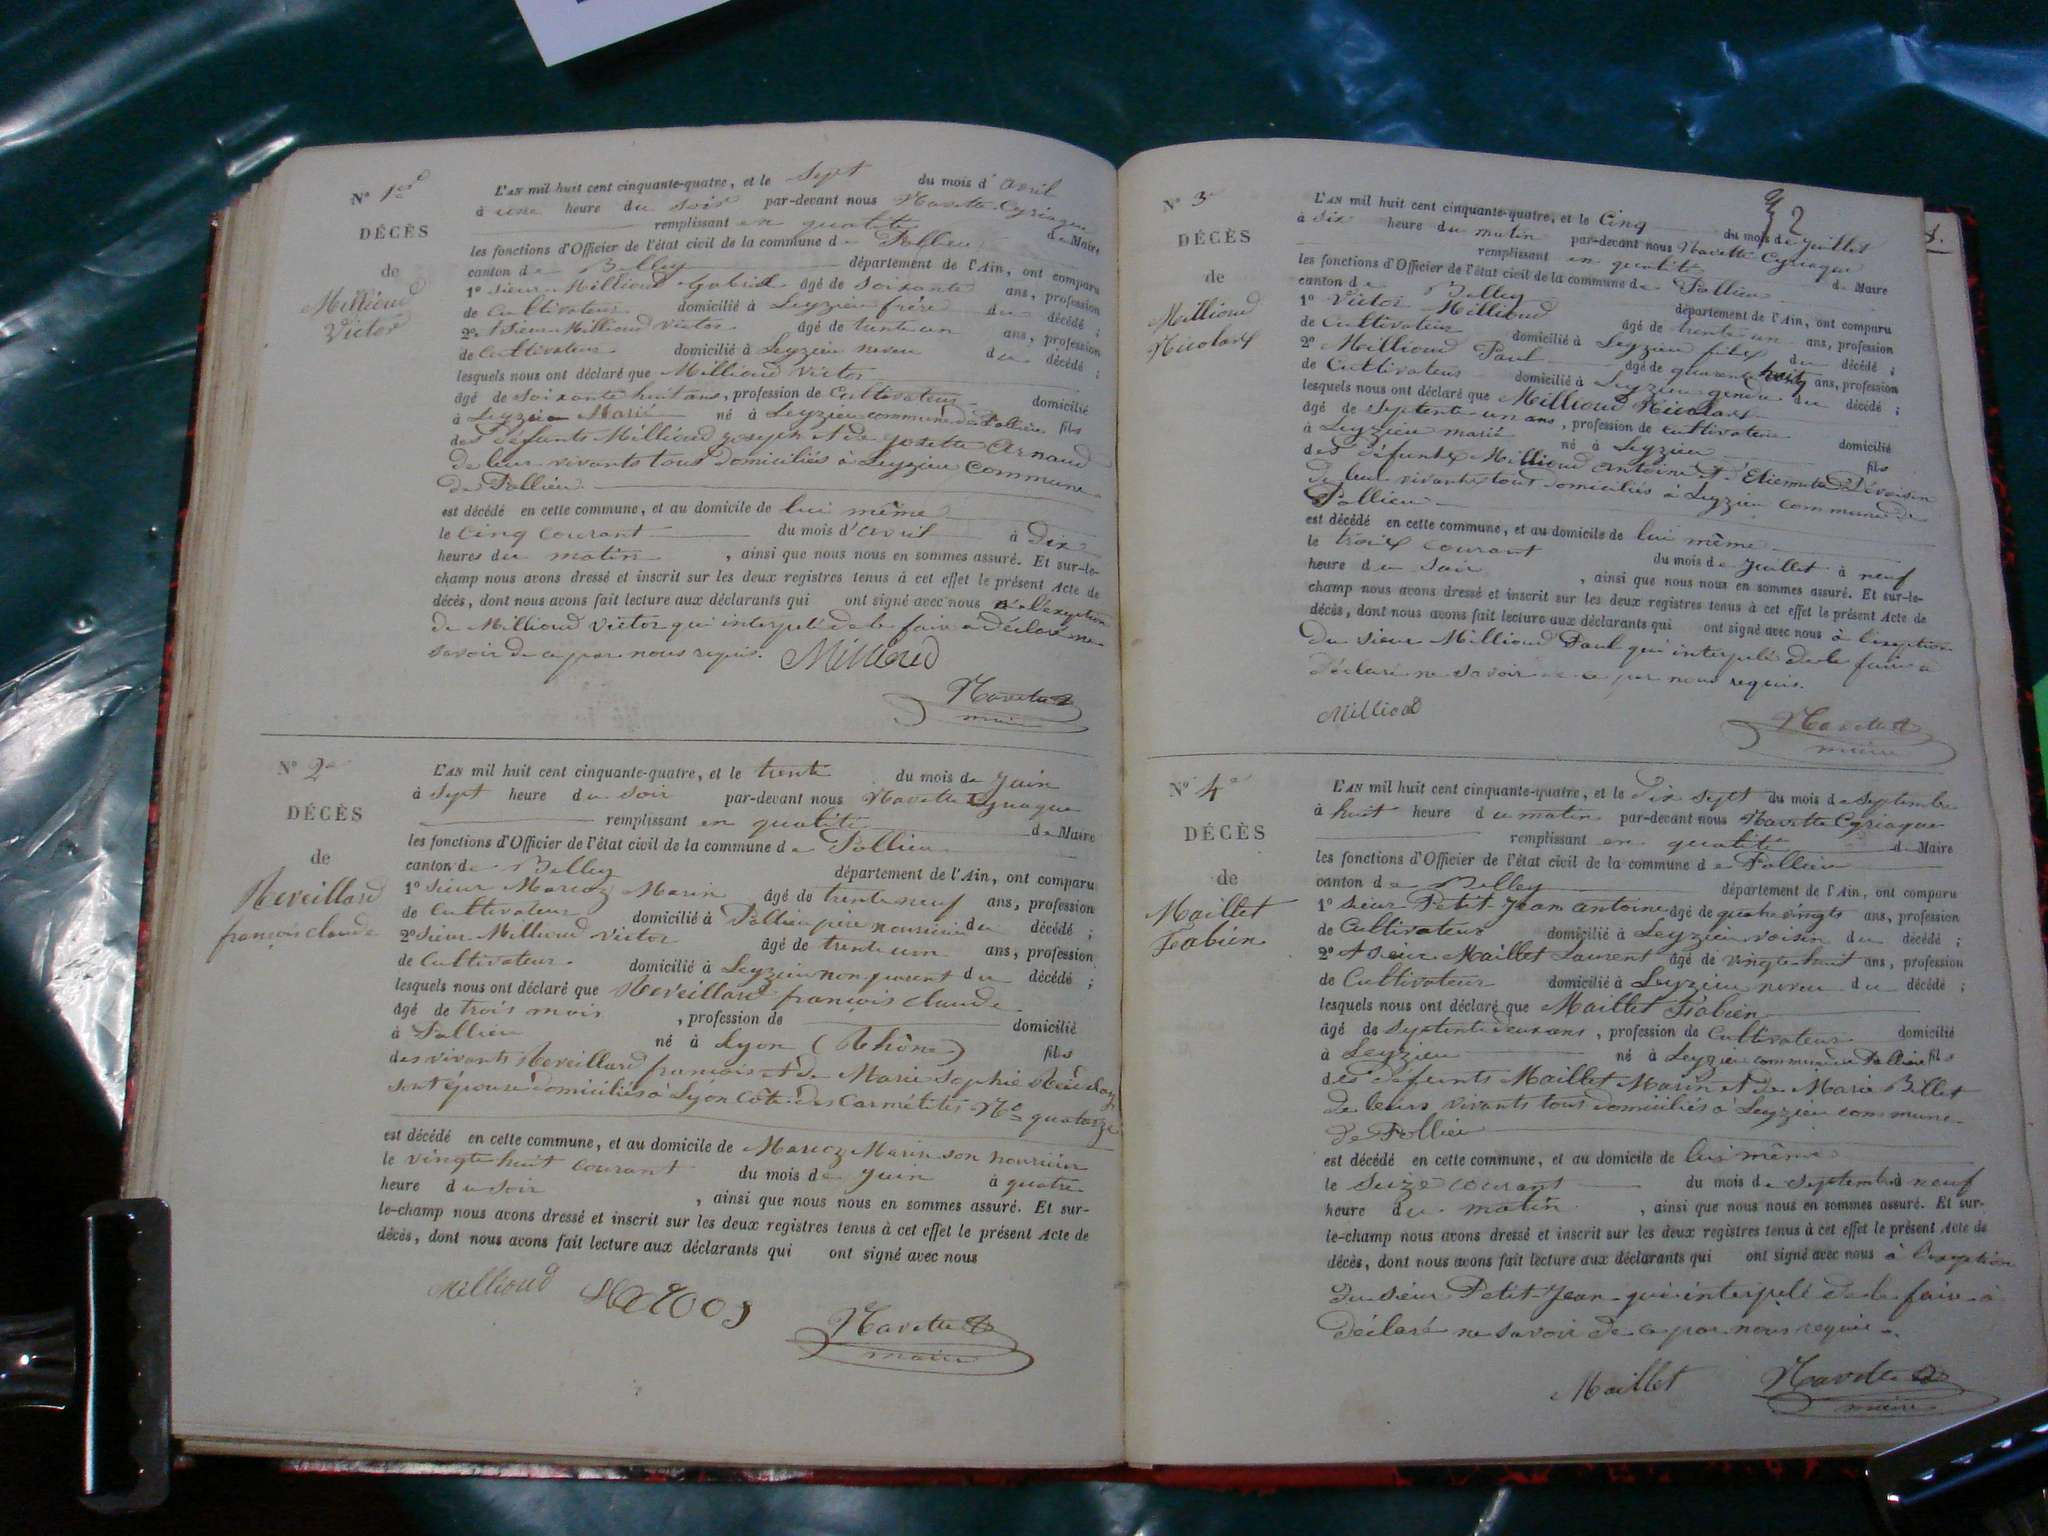 N° 1er
DÉCÈS
de
Millioud
Victor
L'AN mil huit cent cinquante-quatre, et le Sept du mois d'avril
à une heure du soir par-devant nous Navette Cyriaque
remplissant en qualité de Maire
les fonctions d'Officier de l'état civil de la commune de Pollieu
canton de Belley département de l'Ain, ont comparu
1° Sieur Millioud Gabriel âgé de soixante ans, profession
de Cultivateur domicilié à Leyzieu frère du décédé ;
2° et Sieur Millioud Victor âgé de trente un ans, profession
de Cultivateur domicilié à Leyzieu neveu du décédé ;
lesquels nous ont déclaré que Millioud Victor
âgé de soixante huit ans, profession de Cultivateur domicilié
à Leyzieu Marié né à Leyzieu commune de Pollieu fils
des défunts Millioud Joseph et de Josette Arnaud
de leur vivants tous domiciliés à Leyzieu commune
de Pollieu
est décédé en cette commune, et au domicile de lui même
le cinq courant du mois d'avril à dix
heures du matin , ainsi que nous nous en sommes assuré. Et sur-le-
champ nous avons dressé et inscrit sur les deux registres tenus à cet effet le présent Acte de
décès, dont nous avons fait lecture aux déclarants qui ont signé avec nous à l'exeption
de Millioud Victor qui interpelé de le faire a déclaré ne
savoir de ce par nous requis. Millioud
Navette
maire
N° 2
DÉCÈS
de
Reveillard
françois claude
L'AN mil huit cent cinquante-quatre, et le trente du mois de Juin
à sept heure du soir par-devant nous Navette Cyriaque
remplissant en qualité de Maire
les fonctions d'Officier de l'état civil de la commune de Pollieu
canton de Belley département de l'Ain, ont comparu
1° Sieur Marcoz Marin âgé de trente neuf ans, profession
de Cultivateur domicilié à Pollieu père nourricier du décédé ;
2° Sieur Millioud Victor âgé de trente un ans, profession
de Cultivateur. domicilié à Leyzieu non parent du décédé ;
lesquels nous ont déclaré que Reveillard françois claude
âgé de trois mois , profession de domicilié
à Pollieu né à Lyon (Rhône) fils
des vivants Reveillard françois et de Marie Sophie
sont épouse domiciliés à Lyon Côte des Carmélites N° quatorze
est décédé en cette commune, et au domicile de Marcoz Marin son nourricier
le vingt huit courant du mois de Juin à quatre
heure du soir , ainsi que nous nous en sommes assuré. Et sur-
le-champ nous avons dressé et inscrit sur les deux registres tenus à cet effet le présent Acte de
décès, dont nous avons fait lecture aux déclarants qui ont signé avec nous
Millioud Marcoz
Navette
maire
N° 3
DÉCÈS
de
Millioud
Nicolas
L'AN mil huit cent cinquante-quatre, et le Cinq du mois de Juillet
à six heure du matin par-devant nous Navette Cyriaque
remplissant en qualité de Maire
les fonctions d'Officier de l'état civil de la commune de Pollieu
canton de Belley département de l'Ain, ont comparu
1° Victor Millioud âgé de trente un ans, profession
de Cultivateur domicilié à Leyzieu fils du décédé ;
2° Millioud Paul âgé de quarante huit ans, profession
de Cultivateur domicilié à Leyzieu gendre du décédé ;
lesquels nous ont déclaré que Millioud Nicolas
âgé de septente un ans, profession de cultivateur domicilié
à Leyzieu marié né à Leyzieu fils
des défunts Millioud Antoine et d'Etiennette
de leur vivants tout domiciliés à Leyzieu commune de
Pollieu
est décédé en cette commune, et au domicile de lui même
le trois courant du mois de Juillet à neuf
heure du soir , ainsi que nous nous en sommes assuré. Et sur-le-
champ nous avons dressé et inscrit sur les deux registres tenus à cet effet le présent Acte de
décès, dont nous avons fait lecture aux déclarants qui ont signé avec nous à l'exeption
du sieur Millioud Paul qui interpelé de le faire a
déclaré ne savoir de ce par nous requis.
Millioud
Navette
maire
N° 4
DÉCÈS
de
Maillet
Fabien
L'AN mil huit cent cinquante-quatre, et le Dix sept du mois de Septembre
à huit heure du matin par-devant nous Navette Cyriaque
remplissant en qualité de Maire
les fonctions d'Officier de l'état civil de la commune de Pollieu
canton de Belley département de l'Ain, ont comparu
1° Sieur Petit-Jean Antoine âgé de quatre vingts ans, profession
de Cultivateur domicilié à Leyzieu voisin du décédé ;
2° et Sieur Maillet Laurent âgé de vingt huit ans, profession
de Cultivateur domicilié à Leyzieu neveu du décédé ;
lesquels nous ont déclaré que Maillet Fabien
âgé de septente deux ans , profession de Cultivateur domicilié
à Leyzieu né à Leyzieu commune de Pollieu fils
des défunts Maillet Marin et de Marie Billet
de leurs vivants tous domiciliés à Leyzieu commune
de Pollieu
est décédé en cette commune, et au domicile de lui même
le seize courant du mois de septembre à neuf
heure du matin , ainsi que nous nous en sommes assuré. Et sur-
le-champ nous avons dressé et inscrit sur les deux registres tenus à cet effet le présent Acte de
décès, dont nous avons fait lecture aux déclarants qui ont signé avec nous à l'exeption
du sieur Petit-Jean qui interpelé de le faire a
déclaré ne savoir de ce par nous requis.
Maillet Navette
maire